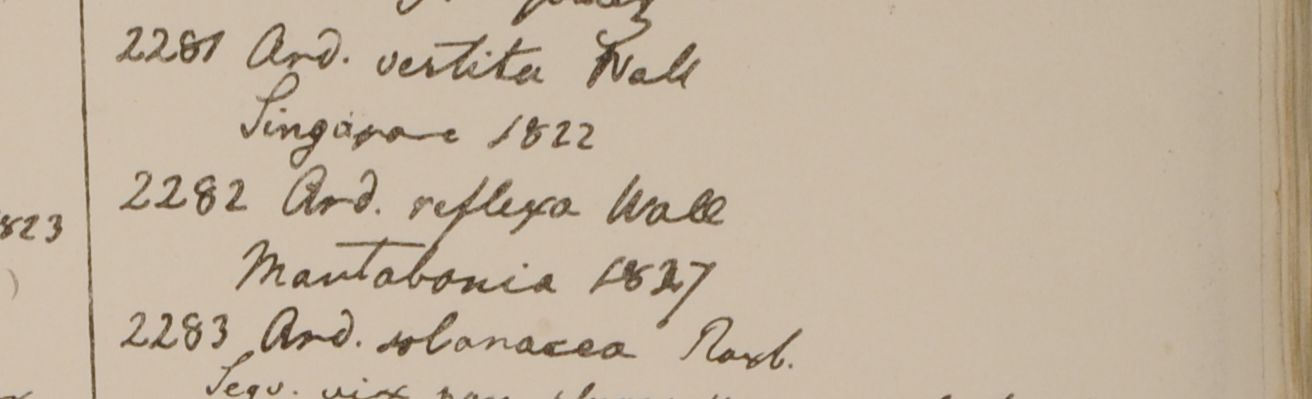 2281 Ard. vestita Wall
Singapore 1822
2282 Ard. reflexa Wall
823
Martabania 1827
2283 Ard. solanacea Roxb.